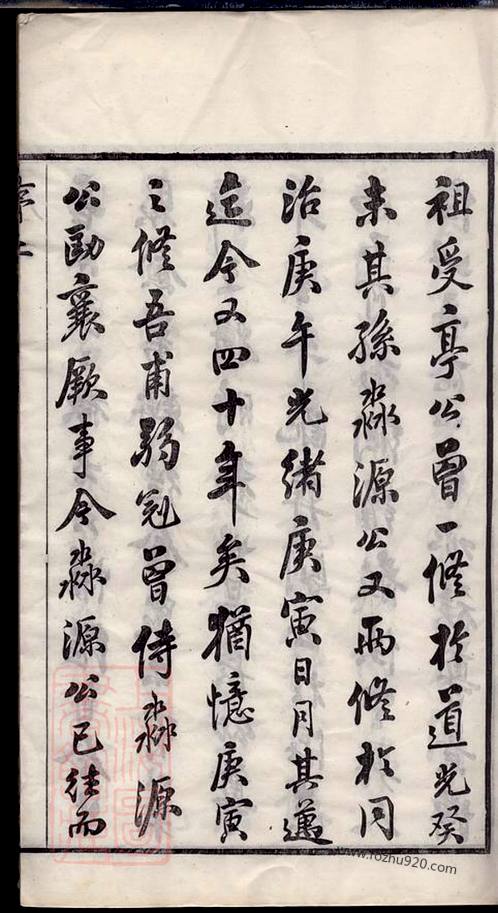 祖受亭公曾一修於道光癸
未其孫淼源公又兩修於同
治庚午光緒庚寅日月其邁
迄今又四十年矣猶憶庚寅
之修吾甫弱冠曾侍淼源
公勷襄厥事今淼源公已往而
www.rozhu920.com